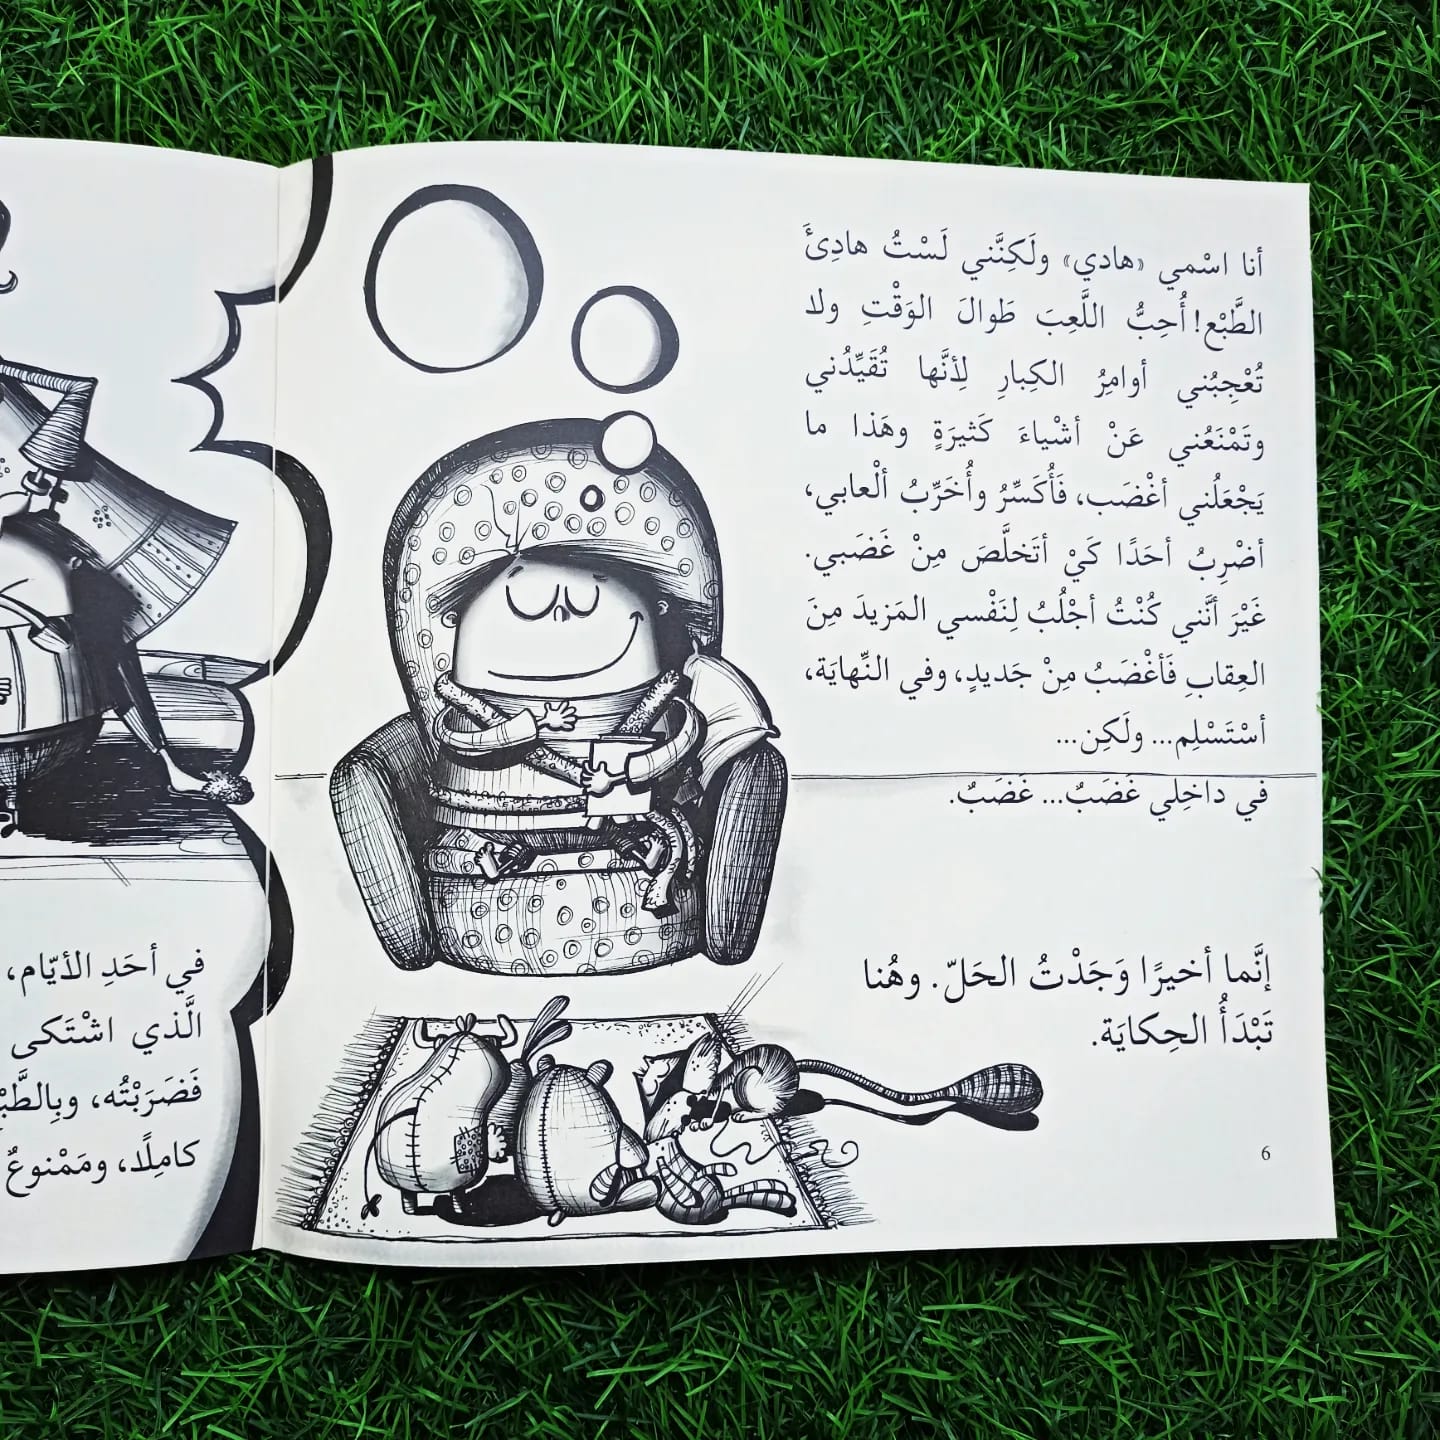 أنا اسْمي «هادي» ولَكِنَّني لَسْتُ هادِئَ
الطَّبْع! أُحِبُّ اللَّعِبَ طَوالَ الوَقْتِ ولا
تُعْجِبُني أوامِرُ الكِبارِ لِأنَّها تُقَيِّدُني
وتَمْنَعُني عَنْ أشْياءَ كَثيرَةٍ وهَذا ما
يَجْعَلُني أغْضَب، فَأُكَسِّرُ وأُخَرِّبُ ألْعابي،
أضْرِبُ أحَدًا كَيْ أتَخلَّصَ مِنْ غَضَبي.
غَيْرَ أنَّني كُنْتُ أجْلُبُ لِنَفْسي المَزيدَ مِنَ
العِقابِ فَأغْضَبُ مِنْ جَديدٍ، وفي النِّهايَة،
أسْتَسْلِم... ولَكِن...
في داخِلي غَضَبٌ... غَضَبٌ.
إنَّما أخيرًا وَجَدْتُ الحَلّ. وهُنا
تَبْدَأُ الحِكايَة.
6
في أحَدِ الأيّام،
الَّذي اشْتَكى
فَضَرَبْتُه، وبِالطَّبْ
كامِلًا، ومَمْنوعٌ